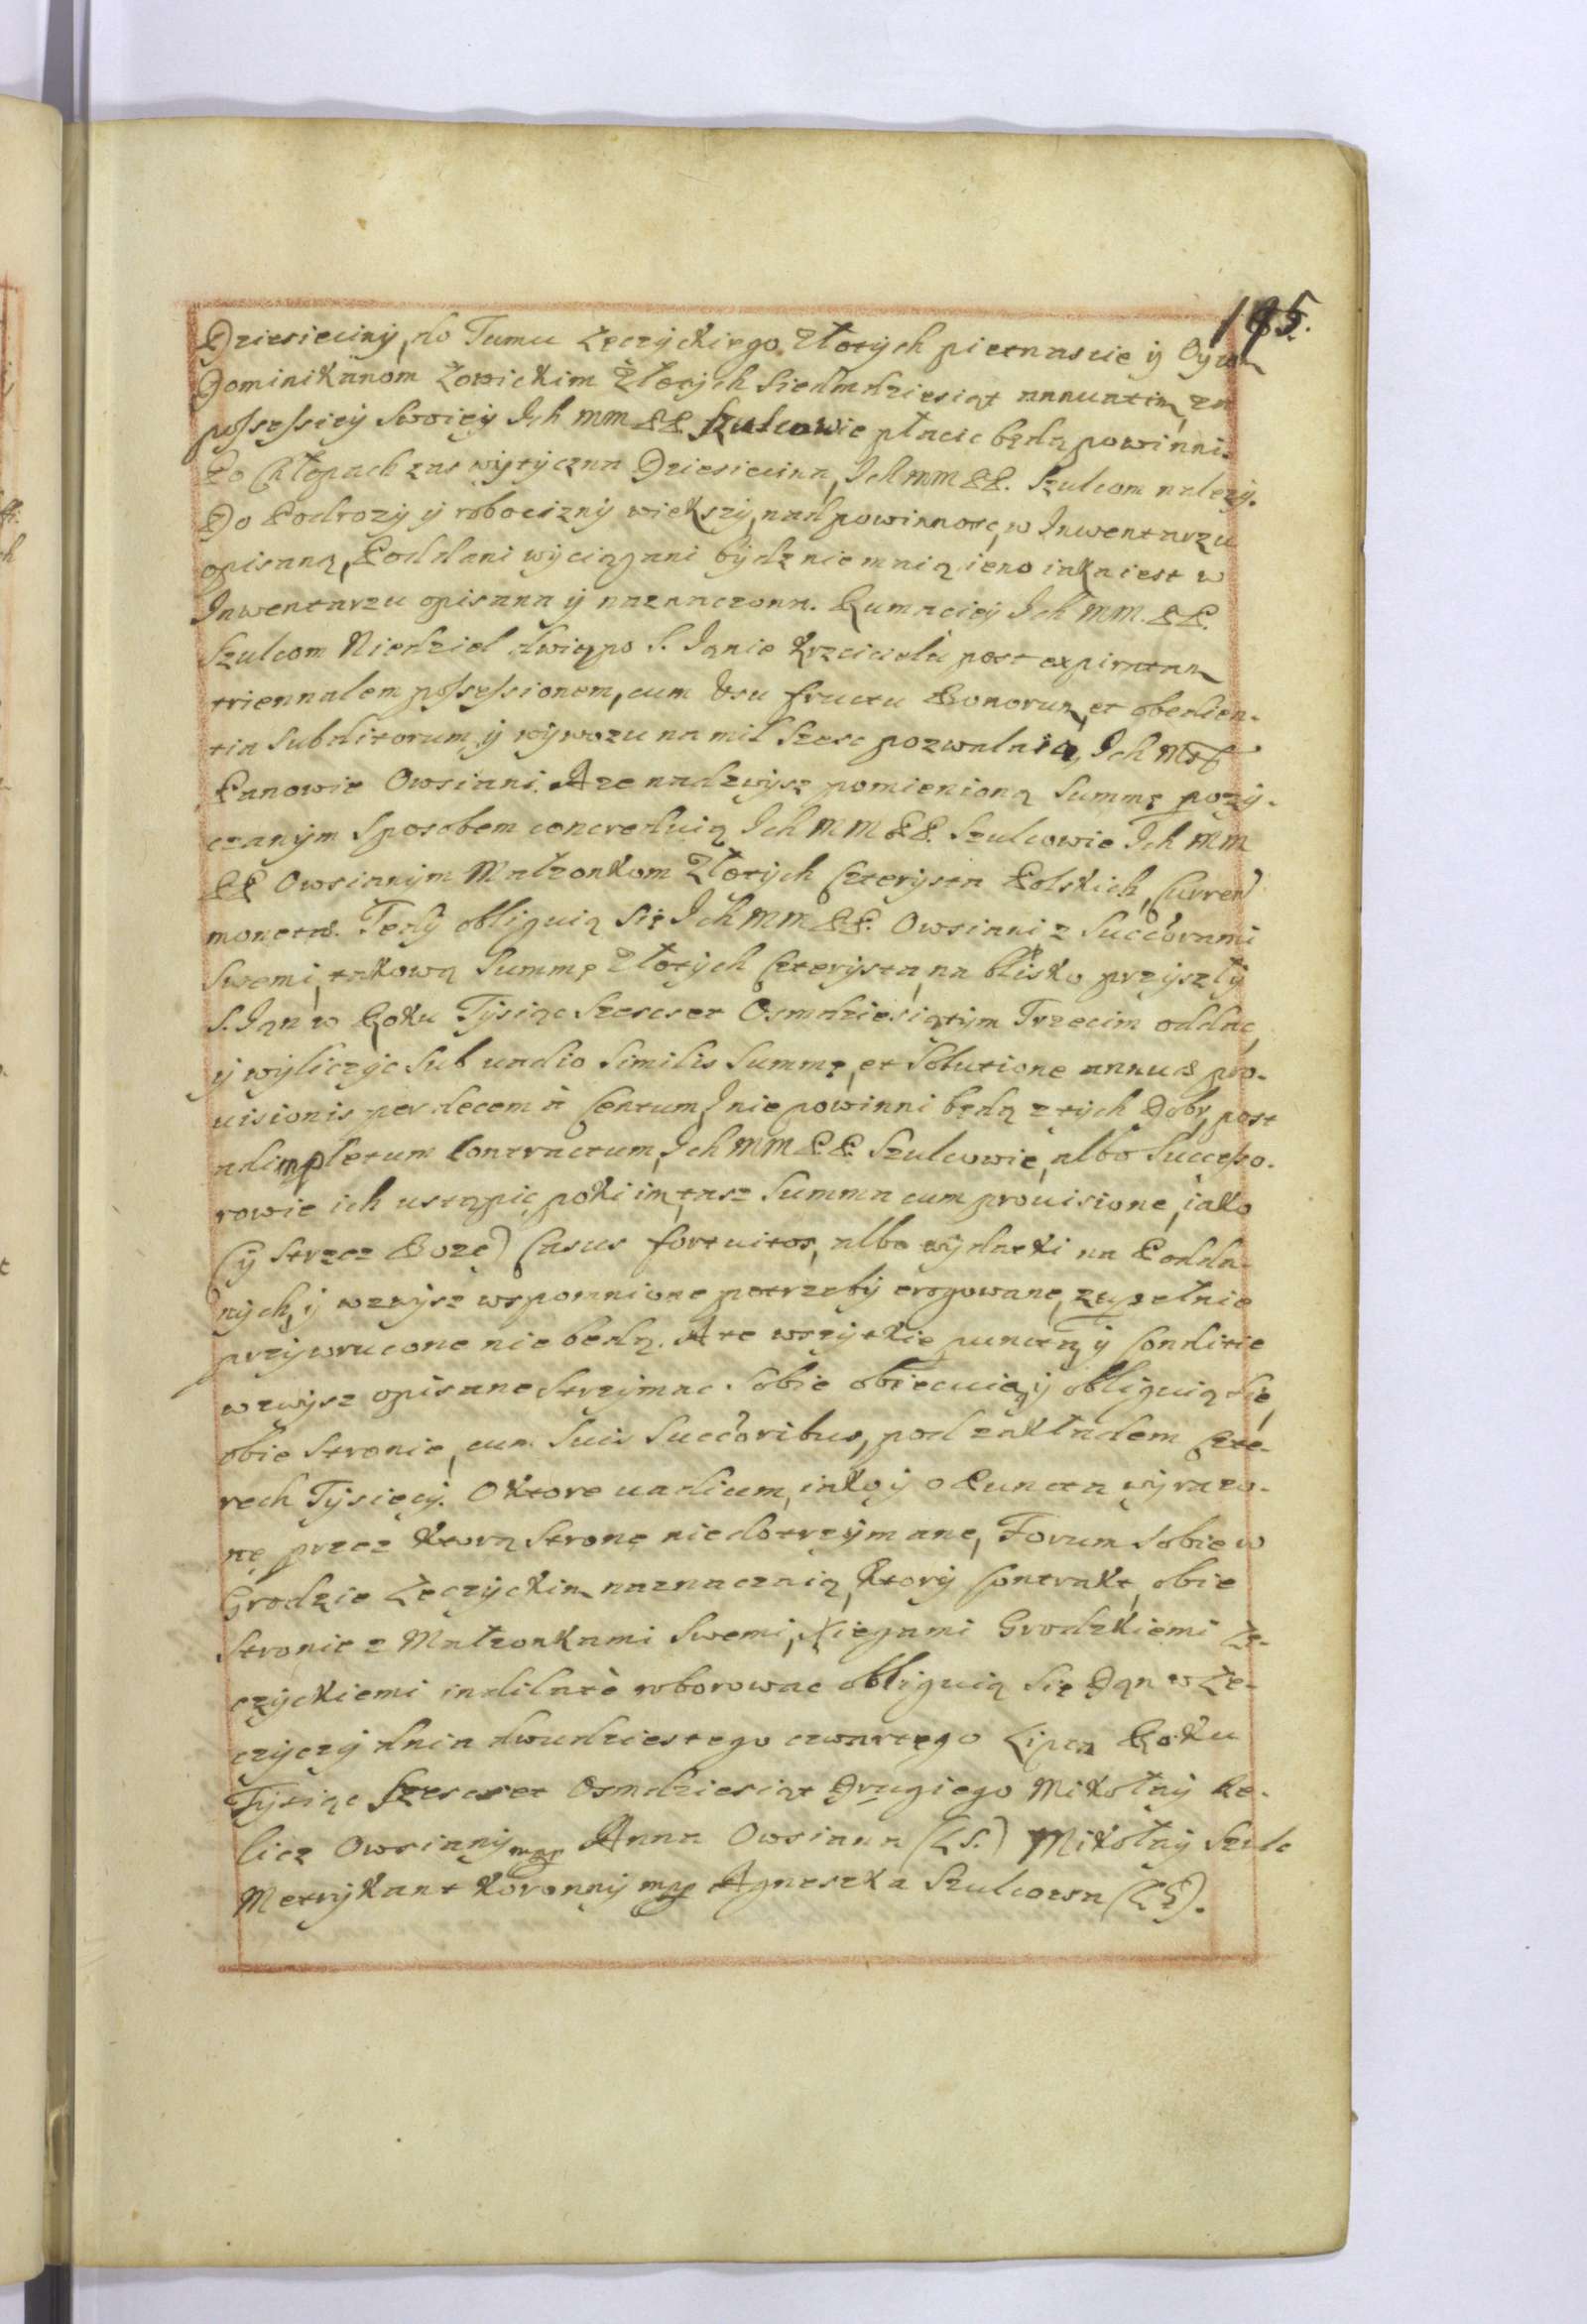 195.
Dziesieciny, do Tumu Łęczyckiego Złotych pietnascie y Oycom
Dominikanom Łowickim Złotych Siedmdziesiąt annuatim, za
possessiey Swoiey Ich MM PP. Szulcowie płacic będą powinni.
Po Chłopach zas wytyczna Dziesiecina, Ich MM PP. Szulcom należy.
Do Podrozy y robocizny wiekszy, nad powinnosc, w Inwentarzu
opisaną, Poddani wyciągani bydz nie maią ieno iaka iest w
Inwentarzu opisana y naznaczona. Rumaciey Ich MM. PP.
Szulcom Niedziel dwię po S. Janie Krzciciela post expiratam
triennalem possessionem, cum Usu fructu Bonorum, et obedien-
tia Subditorum, y wywozu na mil Szesc pozwalaią, Ich Mść
Panowie Owsiani. A ze nadzwysz pomienioną Summę pozy-
czanym Sposobem concreduią Ich MM PP. Szulcowie Ich MM
PP Owsianym Małzonkom Złotych Czterysta Polskich, Curren
moneta. Tedy obliguią Się Ich MM PP. Owsiani, z Succorami
Swemi, takową Summę Złotych Czterysta, na blisko przyszły
S. Jan w Roku Tysiąc Szescset Osmdziesiątym Trzecim oddac,
y wyliczyc Sub vadio Similis Summę, et Solutione annuae pro-
uisionis per decem à Centum, I nie powinni będą z tych Dobr, post
adimpletum Contractum, Ich MM PP. Szulcowie, albo Successo-
rowie ich ustąpic, poki im, tasz Summa cum prouisione, iako
(y Strzez Boze) Casus fortuitos, albo wydatki na Podda-
nych, y wzwysz wspomnione potrzeby erogowane, zupełnie
przywrucone nie bedą. A te wszytkie puncta, y Conditie
wzwysz opisane Strzymac Sobie obiecuią, y obliguią Się
obie Stronie, cum Suis Succoribus, pod zakładem Czte-
rech Tysięcy. O ktore vadium, iako y o Puncta wyrazo-
ne przez ktorą Stronę niedotrzymane, Forum Sobie w
Grodzie Łęczyckim naznaczaią, ktory Contrakt, obie
Stronie z Małzonkami Swemi, Xięgami Grodzkiemi Łę-
czyckiemi indilatè roborowac obliguią Się Dan w Łę-
czyczy dnia dwudziestego czwartego Lipca Roku
Tysiąc Szescset Osmdziesiąt Drugiego Mikołay Re-
licz Owsiany mpp Anna Owsiana (LS.) Mikołay Szulc
Metrykant Koronny mpp Agneszka Szulcowa (LS).